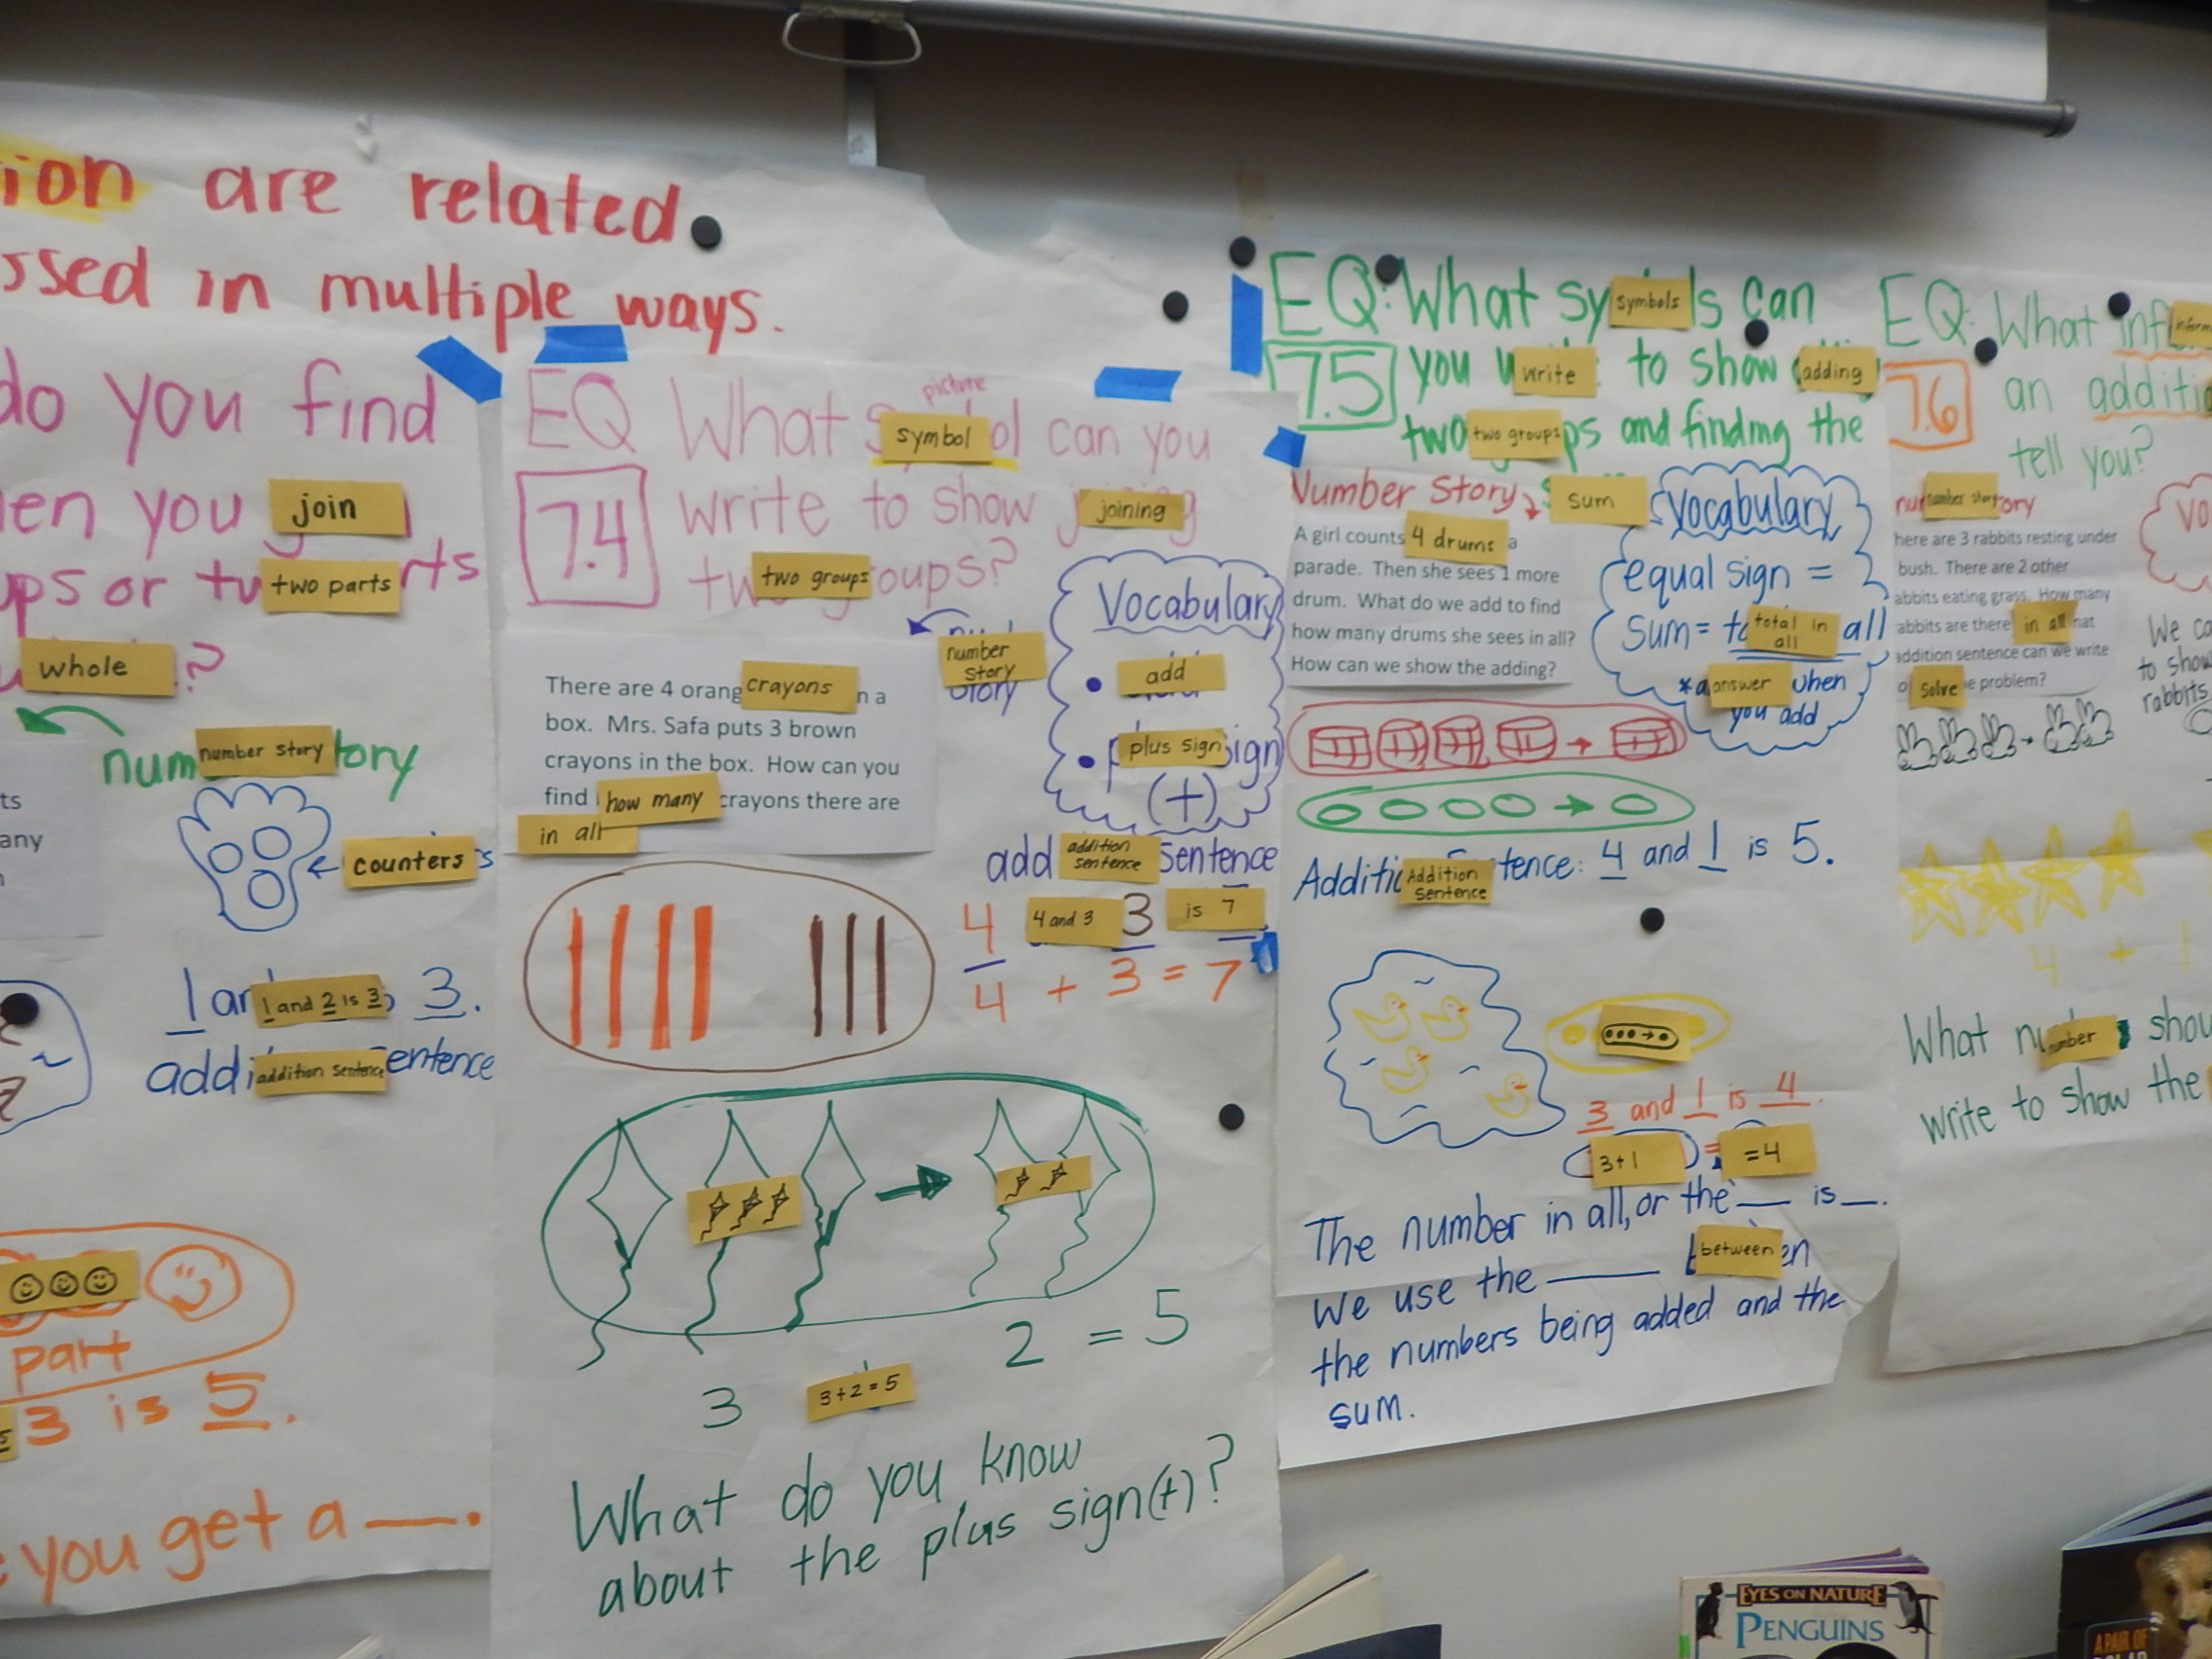 ion are related
ssed in multiple ways.
do you find
en you join
ups or two parts
whole ?
number story
ts
any
counters
1 and 2 is 3 3.
addition sentence
part
3 is 5.
you get a ___.
EQ What symbol can you
picture
7.4 write to show joining
two groups?
number story
There are 4 orang crayons n a
box. Mrs. Safa puts 3 brown
crayons in the box. How can you
find how many crayons there are
in all
Vocabulary
• add
• plus sign
(+)
addition sentence
4 4 and 3 3 is 7
4 + 3 = 7
3 3+2=5 2 = 5
What do you know
about the plus sign(+)?
EQ: What symbols can
7.5 you write to show adding
two groups and finding the
sum
Number Story
A girl counts 4 drums a
parade. Then she sees 1 more
drum. What do we add to find
how many drums she sees in all?
How can we show the adding?
Vocabulary
equal sign =
sum = total in all
*answer when
you add
Addition Sentence: 4 and 1 is 5.
3 and 1 is 4.
3+1 =4
The number in all, or the ___ is ___.
We use the ___ between
the numbers being added and the
sum.
EQ: What
7.6 an additi
tell you?
number story
here are 3 rabbits resting under
bush. There are 2 other
abbits eating grass. How many
abbits are there in all hat
addition sentence can we write
o solve e problem?
We ca
to show
rabbits
4 + 1
What number shou
write to show the
EYES ON NATURE
PENGUINS
A PAIR OF